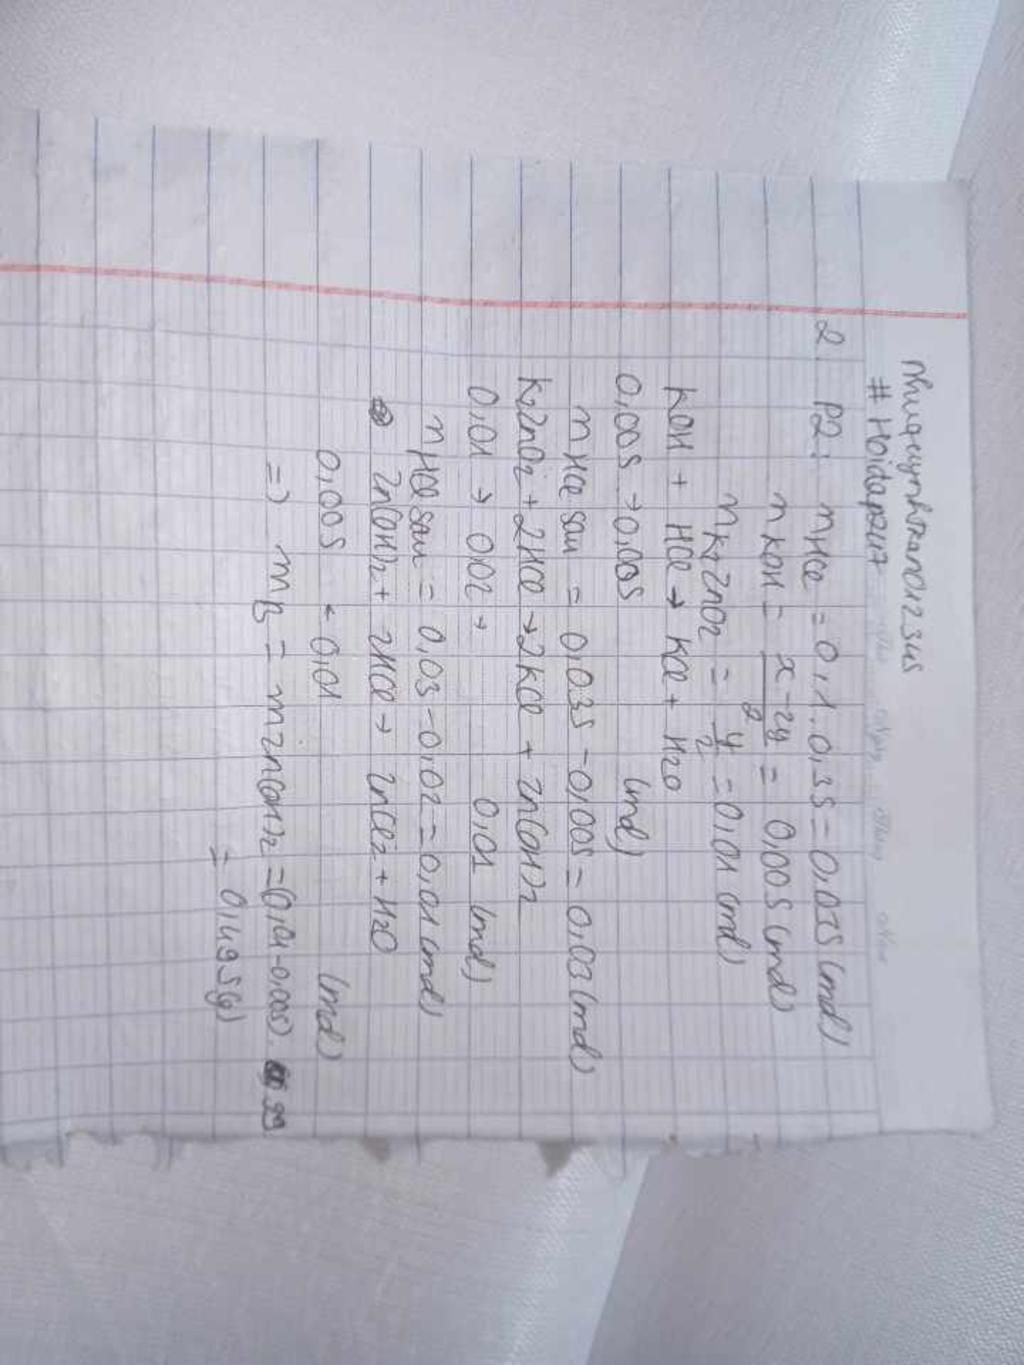 nhuquynhtran012345
# Hoidap247
2. P2: nHCl = 0,1.0,35 = 0,035 (mol)
nKOH = x-2y/2 = 0,005 (mol)
nK2ZnO2 = y/2 = 0,01 (mol)
KOH + HCl → KCl + H2O
0,005 → 0,005 (mol)
nHCl sau = 0,035 - 0,005 = 0,03 (mol)
K2ZnO2 + 2HCl → 2KCl + Zn(OH)2
0,01 → 0,02 → 0,01 (mol)
nHCl sau = 0,03 - 0,02 = 0,01 (mol)
Zn(OH)2 + 2HCl → ZnCl2 + H2O
0,005 ← 0,01 (mol)
=> mB = mZn(OH)2 = (0,01-0,005). 99
= 0,495 (g)